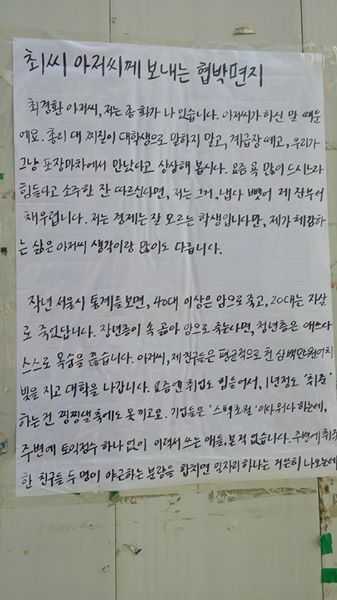 최씨 아저씨께 보내는 협박편지
최경환 아저씨, 저는 좀 화가 나 있습니다. 아저씨가 하신 말 때문
에요. 총리 대 찌질이 대학생으로 말하지 말고, 계급장 떼고, 우리가
그냥 포장마차에서 만났다고 상상해 봅시다. 요즘 욕 많이 드시느라
힘들다고 소주 한 잔 따르신다면, 저는 그거, 냅다 뺏어 제 잔부터
채우렵니다. 저는 경제는 잘 모르는 학생입니다만, 제가 체감하
는 삶은 아저씨 생각이랑 많이도 다릅니다.
작년 서울시 통계를 보면, 40대 이상은 암으로 죽고, 20대는 자살
로 죽었답니다. 장년층이 속 곪아 암으로 죽는다면, 청년층은 애쓰다
스스로 목숨을 끊습니다. 아저씨, 제 친구들은 평균적으로 한 삼백만원어치
빚을 지고 대학을 나갑니다. 요즘엔 취업도 힘들어서, 1년 정도 '취준'
하는 건 찡찡댈 축에도 못 끼고요. 기업들은 '스펙초월' 이라 뭐라 하는데,
주변에 토익점수 하나 없이 이력서 쓰는 애들, 본 적 없습니다. 주변에 취직
한 친구들 두 명이 야근하는 분량을 합치면 일자리 하나는 거뜬히 나오는데